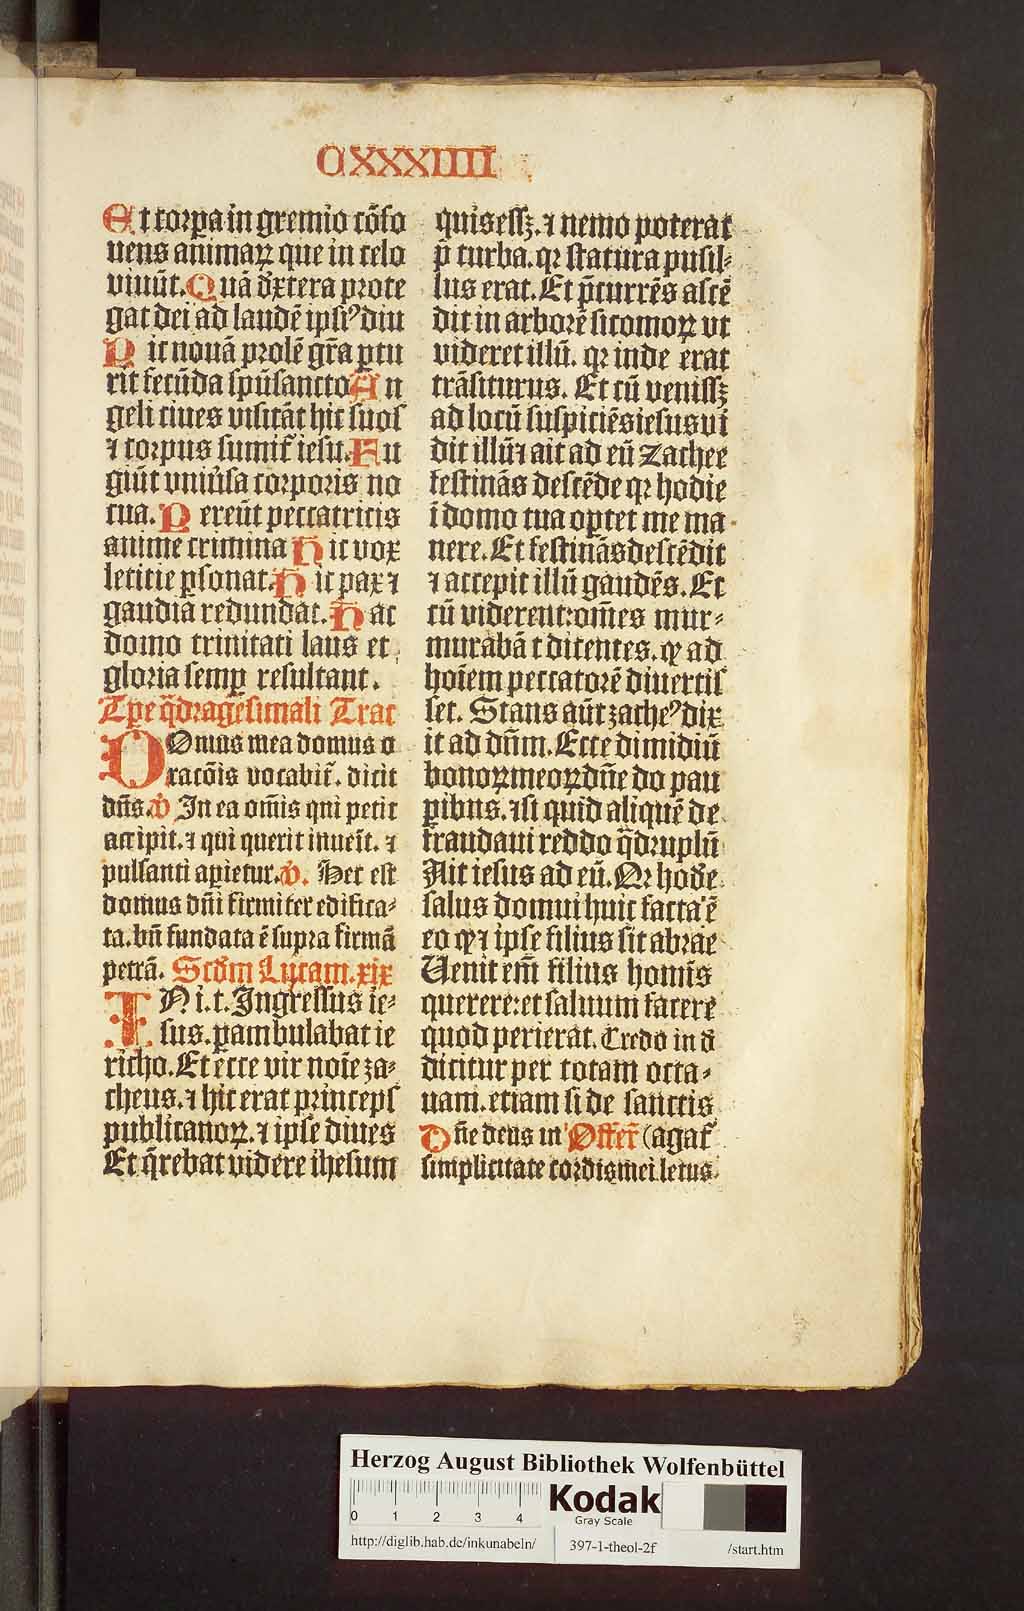 CXXXIIII
Et corpa in gremio cōfo
uens animaꝝ que in celo
viuūt. Quā dxtera prote
gat dei ad laudē ipsiꝰ diu
Hic nouā prolē gr̄a ptu
rit fecūda spūsancto An
geli ciues visitāt hic suos
⁊ corpus sumit̄ iesu. Fu
giūt vniũsa corporis no
cua. Pereūt peccatricis
anime crimina Hic vox
leticie ꝑsonat. Hic pax ⁊
gaudia redundāt. Hac
domo trinitati laus et
gloria semꝑ resultant.
Tꝑe q̄dragesimali Trac
DOmus mea domus o
racōis vocabit̄. dicit
dn̄s. ꝟ In ea om̄is qui petit
accipit. ⁊ qui querit inueīt. ⁊
pulsanti apietur. ꝟ. Hec est
domus dn̄i firmiter edifica⸗
ta. bn̄ fundata ē supra firmā
petrā. Scd̄m Lucam. xix
IN i. t. Ingressus ie⸗
sus. ꝑambulabat ie
richo. Et ecce vir noīe za⸗
cheus. ⁊ hic erat princeps
publicanoꝝ. ⁊ ipse diues
Et q̄rebat videre ihesum
quis essꝫ. ⁊ nemo poterat
p̄ turba. qꝛ statura pusil⸗
lus erat. Et p̄currēs ascē
dit in arborē sicomoꝝ vt
videret illū. qꝛ inde erat
trāsiturus. Et cū venissꝫ
ad locū suspiciēs iesus vi
dit illū ⁊ ait ad eū Zachee
festinās descēde qꝛ hodie
ī domo tua oꝑtet me ma
nere. Et festinās descēdit
⁊ accepit illū gaudēs. Et
cū viderent: om̄es mur⸗
murabāt dicentes. ꝙ ad
hoīem peccatorē diuertis
set. Stans aūt zacheꝰ dix
it ad dn̄m. Ecce dimidiū
bonoꝝ meoꝝ dn̄e do pau
ꝑibus. ⁊ si quid aliquē de
fraudaui reddo q̄druplū
Ait iesus ad eū. Qꝛ hodie
salus domui huic facta ē
eo ꝙ ⁊ ipse filius sit abrae
Uenit em̄ filius homīs
querere: et saluum facere
quod perierat. Credo in d̄
dicitur per totam octa⸗
uam. etiam si de sanctis
Dn̄e deus in Offer̄ (agat̄
simplicitate cordis mei letus
Herzog August Bibliothek Wolfenbüttel
0 1 2 3 4
Kodak
Gray Scale
http://diglib.hab.de/inkunabeln/ 397-1-theol-2f /start.htm